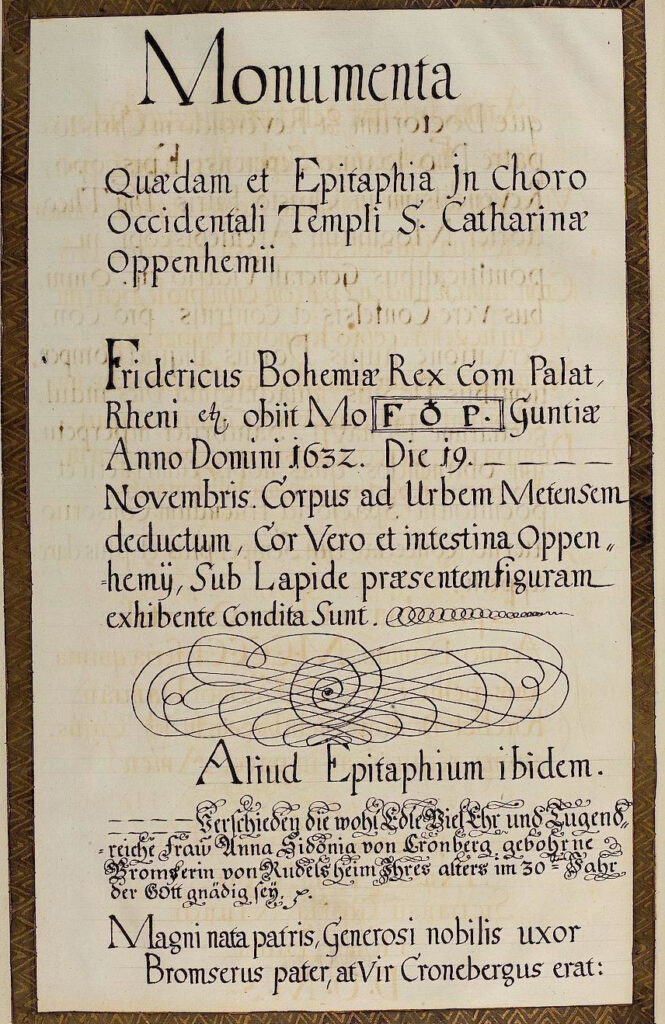 Monumenta
Quædam et Epitaphia Jn Choro
Occidentali Templi S. Catharinæ
Oppenhemii
Fridericus Bohemiæ Rex Com Palat,
Rheni etz. obiit Mo F O P. Guntiæ
Anno Domini 1632. Die 19. _ _ _ _
Novembris. Corpus ad Urbem Metensem
deductum, Cor Vero et intestina Oppen„
-hemÿ, Sub Lapide præsentemfiguram
exhibente Condita Sunt.
Aliud Epitaphium ibidem.
_ _ _ _ Verschieden die wohl Edle Viel Ehr und Tugend„
-reiche Fraŭ Anna Sidonia von Cronberg gebohrne
Bromserin von Rudelsheim Jhres alters im 30ten Jahr
der Gott gnädig seÿ.
Magni nata patris, Generosi nobilis uxor
Bromserus pater, at Vir Cronebergus erat: